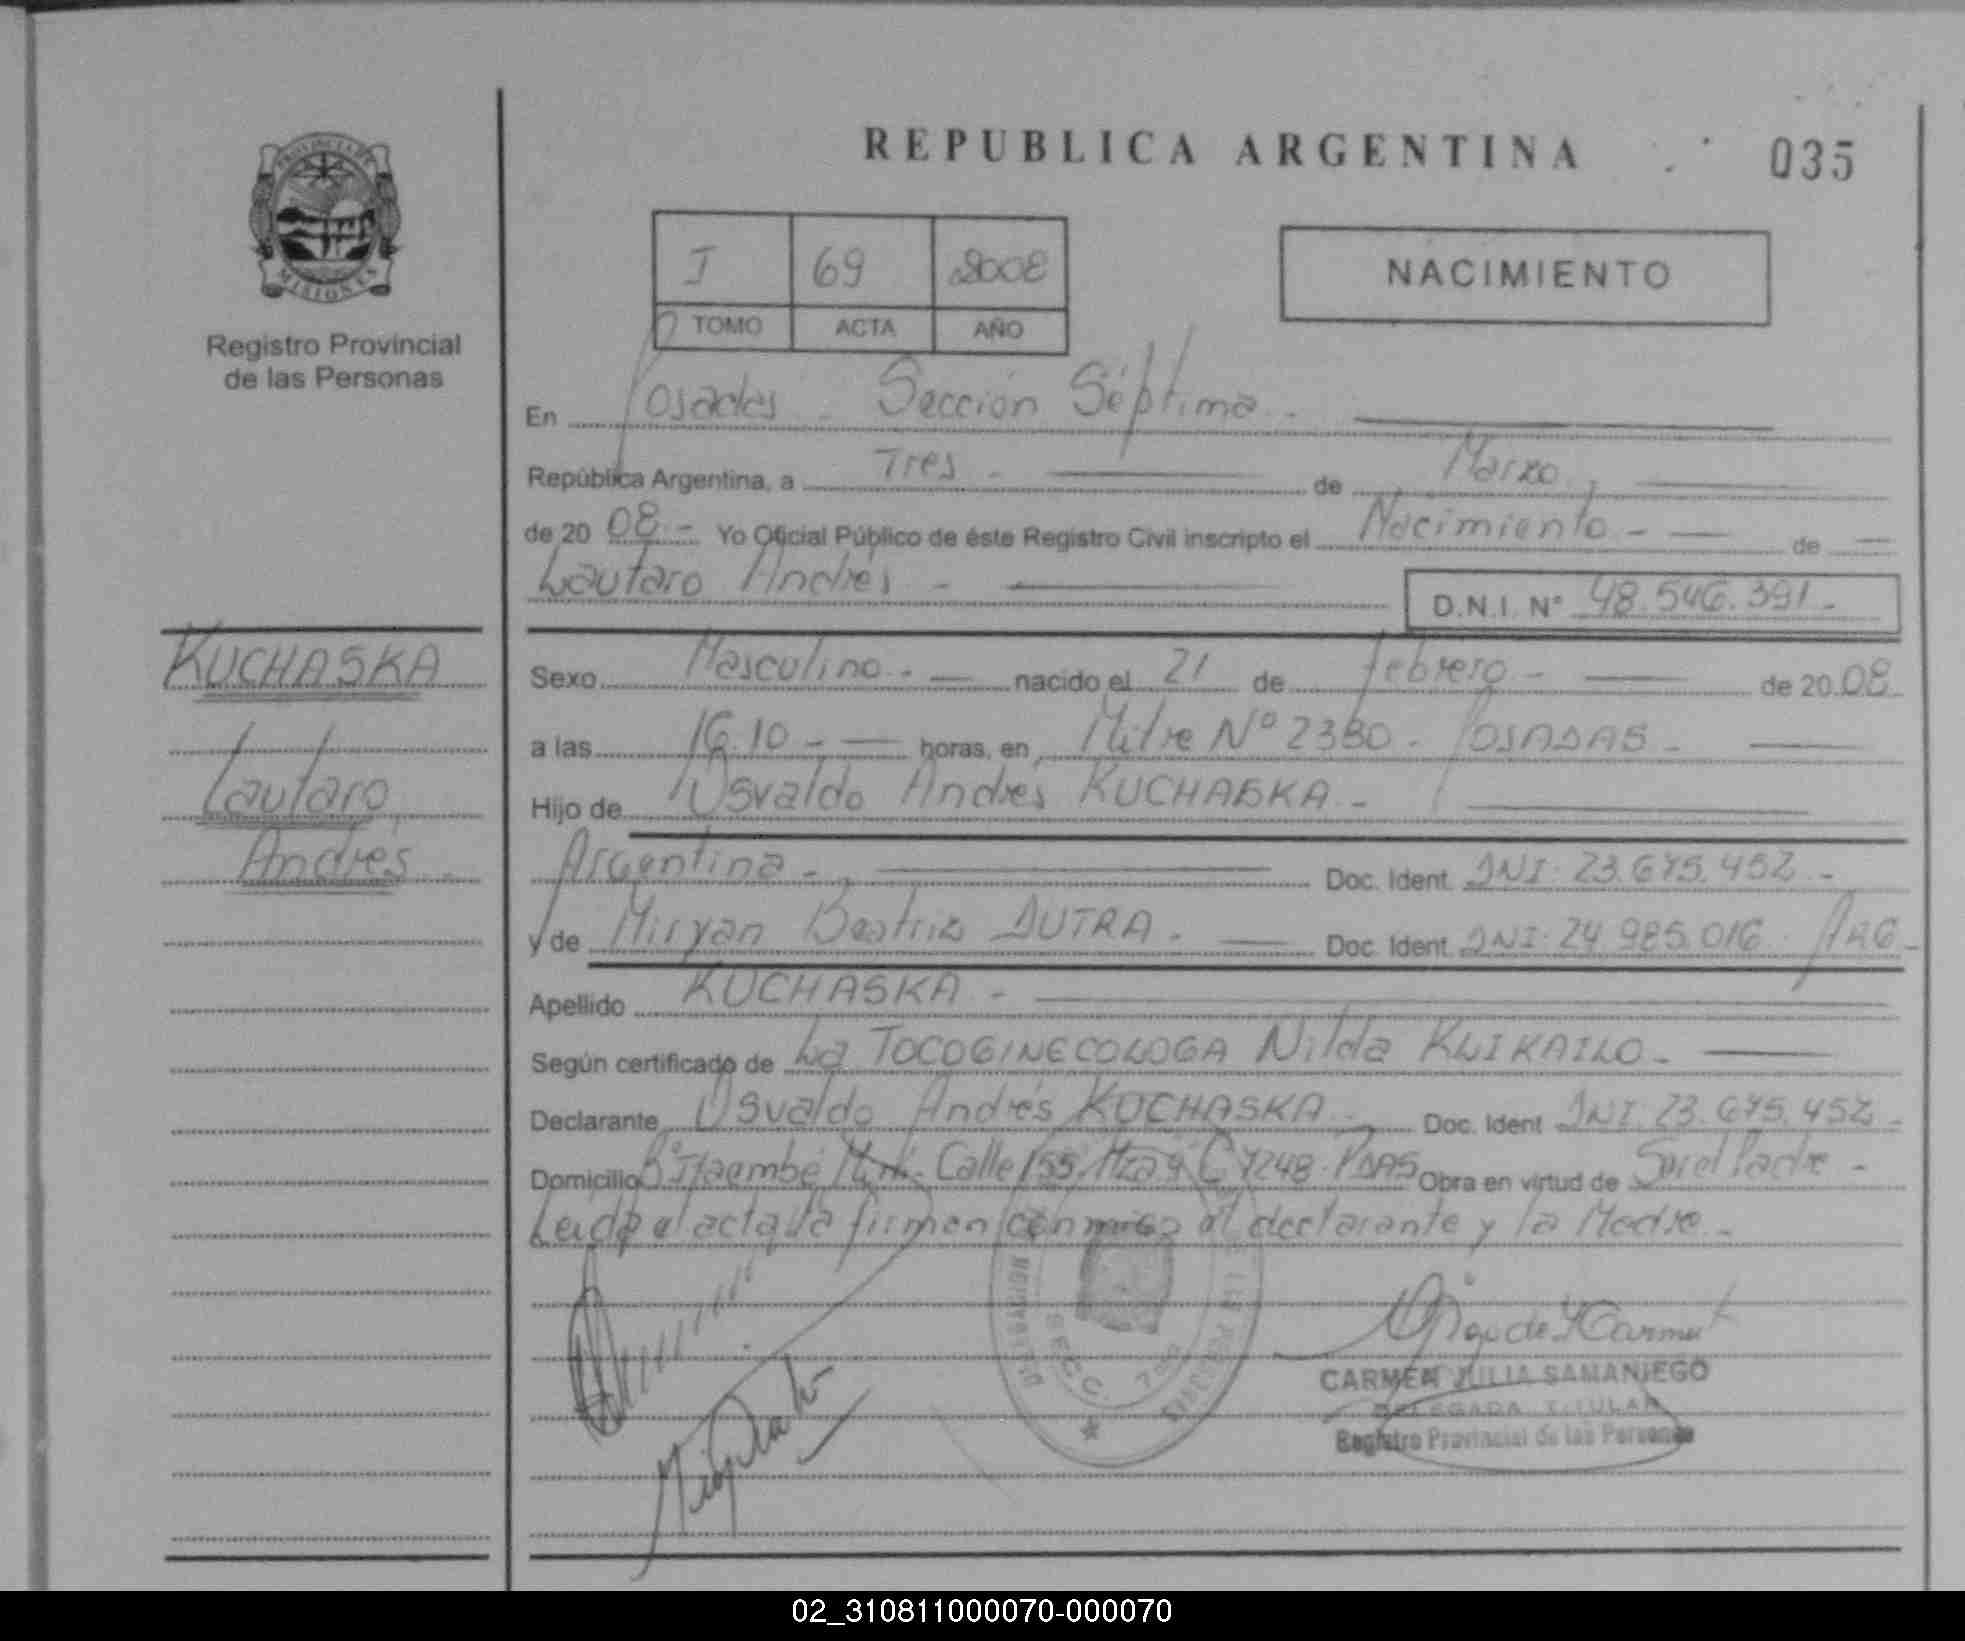 REPUBLICA ARGENTINA
035
PROVINCIA DE
MISIONES
Registro Provincial
de las Personas
I 69 2008
TOMO ACTA AÑO
NACIMIENTO
En Posadas - Sección Séptima -
República Argentina, a Tres - de Marzo -
de 20 08 - Yo Oficial Público de éste Registro Civil inscripto el Nacimiento - de
Lautaro Andrés - D.N.I. N° 48.546.391 -
KUCHASKA
Lautaro
Andrés
Sexo Masculino - nacido el 21 de febrero - de 20 08
a las 16.10 - horas, en Mitre Nº 2380 - POSADAS -
Hijo de Osvaldo Andrés KUCHASKA -
Argentina - Doc. Ident. DNI: 23.675.452 -
y de Miryan Beatriz DUTRA - Doc. Ident. DNI: 24.985.016 - ARG -
Apellido KUCHASKA -
Según certificado de La TOCOGINECOLOGA Nilda KLIKAILO -
Declarante Osvaldo Andrés KUCHASKA - Doc. Ident DNI: 23.675.452 -
Domicilio Bº Itaembé Miní - Calle 155 Mza 9 C 7248 - PDAS Obra en virtud de Ser el Padre -
Leida el acta la firman conmigo el declarante y la Madre -
SECC. 7
CARMEN JULIA SAMANIEGO
DELEGADA TITULAR
Registro Provincial de las Personas
02_310811000070-000070